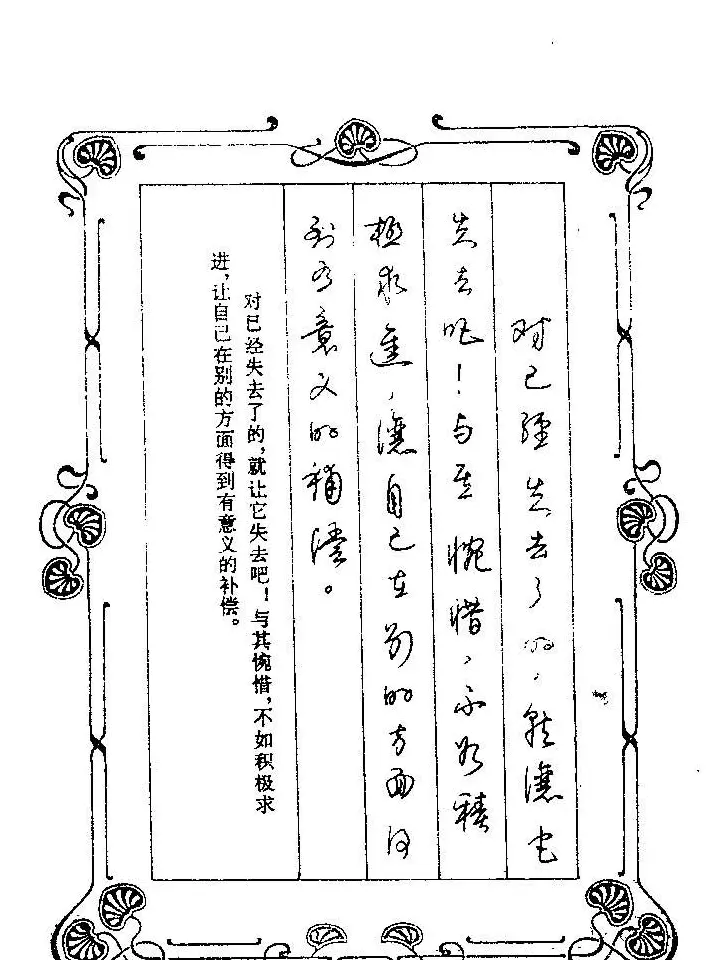 对已經失去了的，就讓它
失去吧！与其惋惜，不如積
極求進，讓自己在别的方面得
到有意义的補償。
对已经失去了的，就让它失去吧！与其惋惜，不如积极求
进，让自己在别的方面得到有意义的补偿。